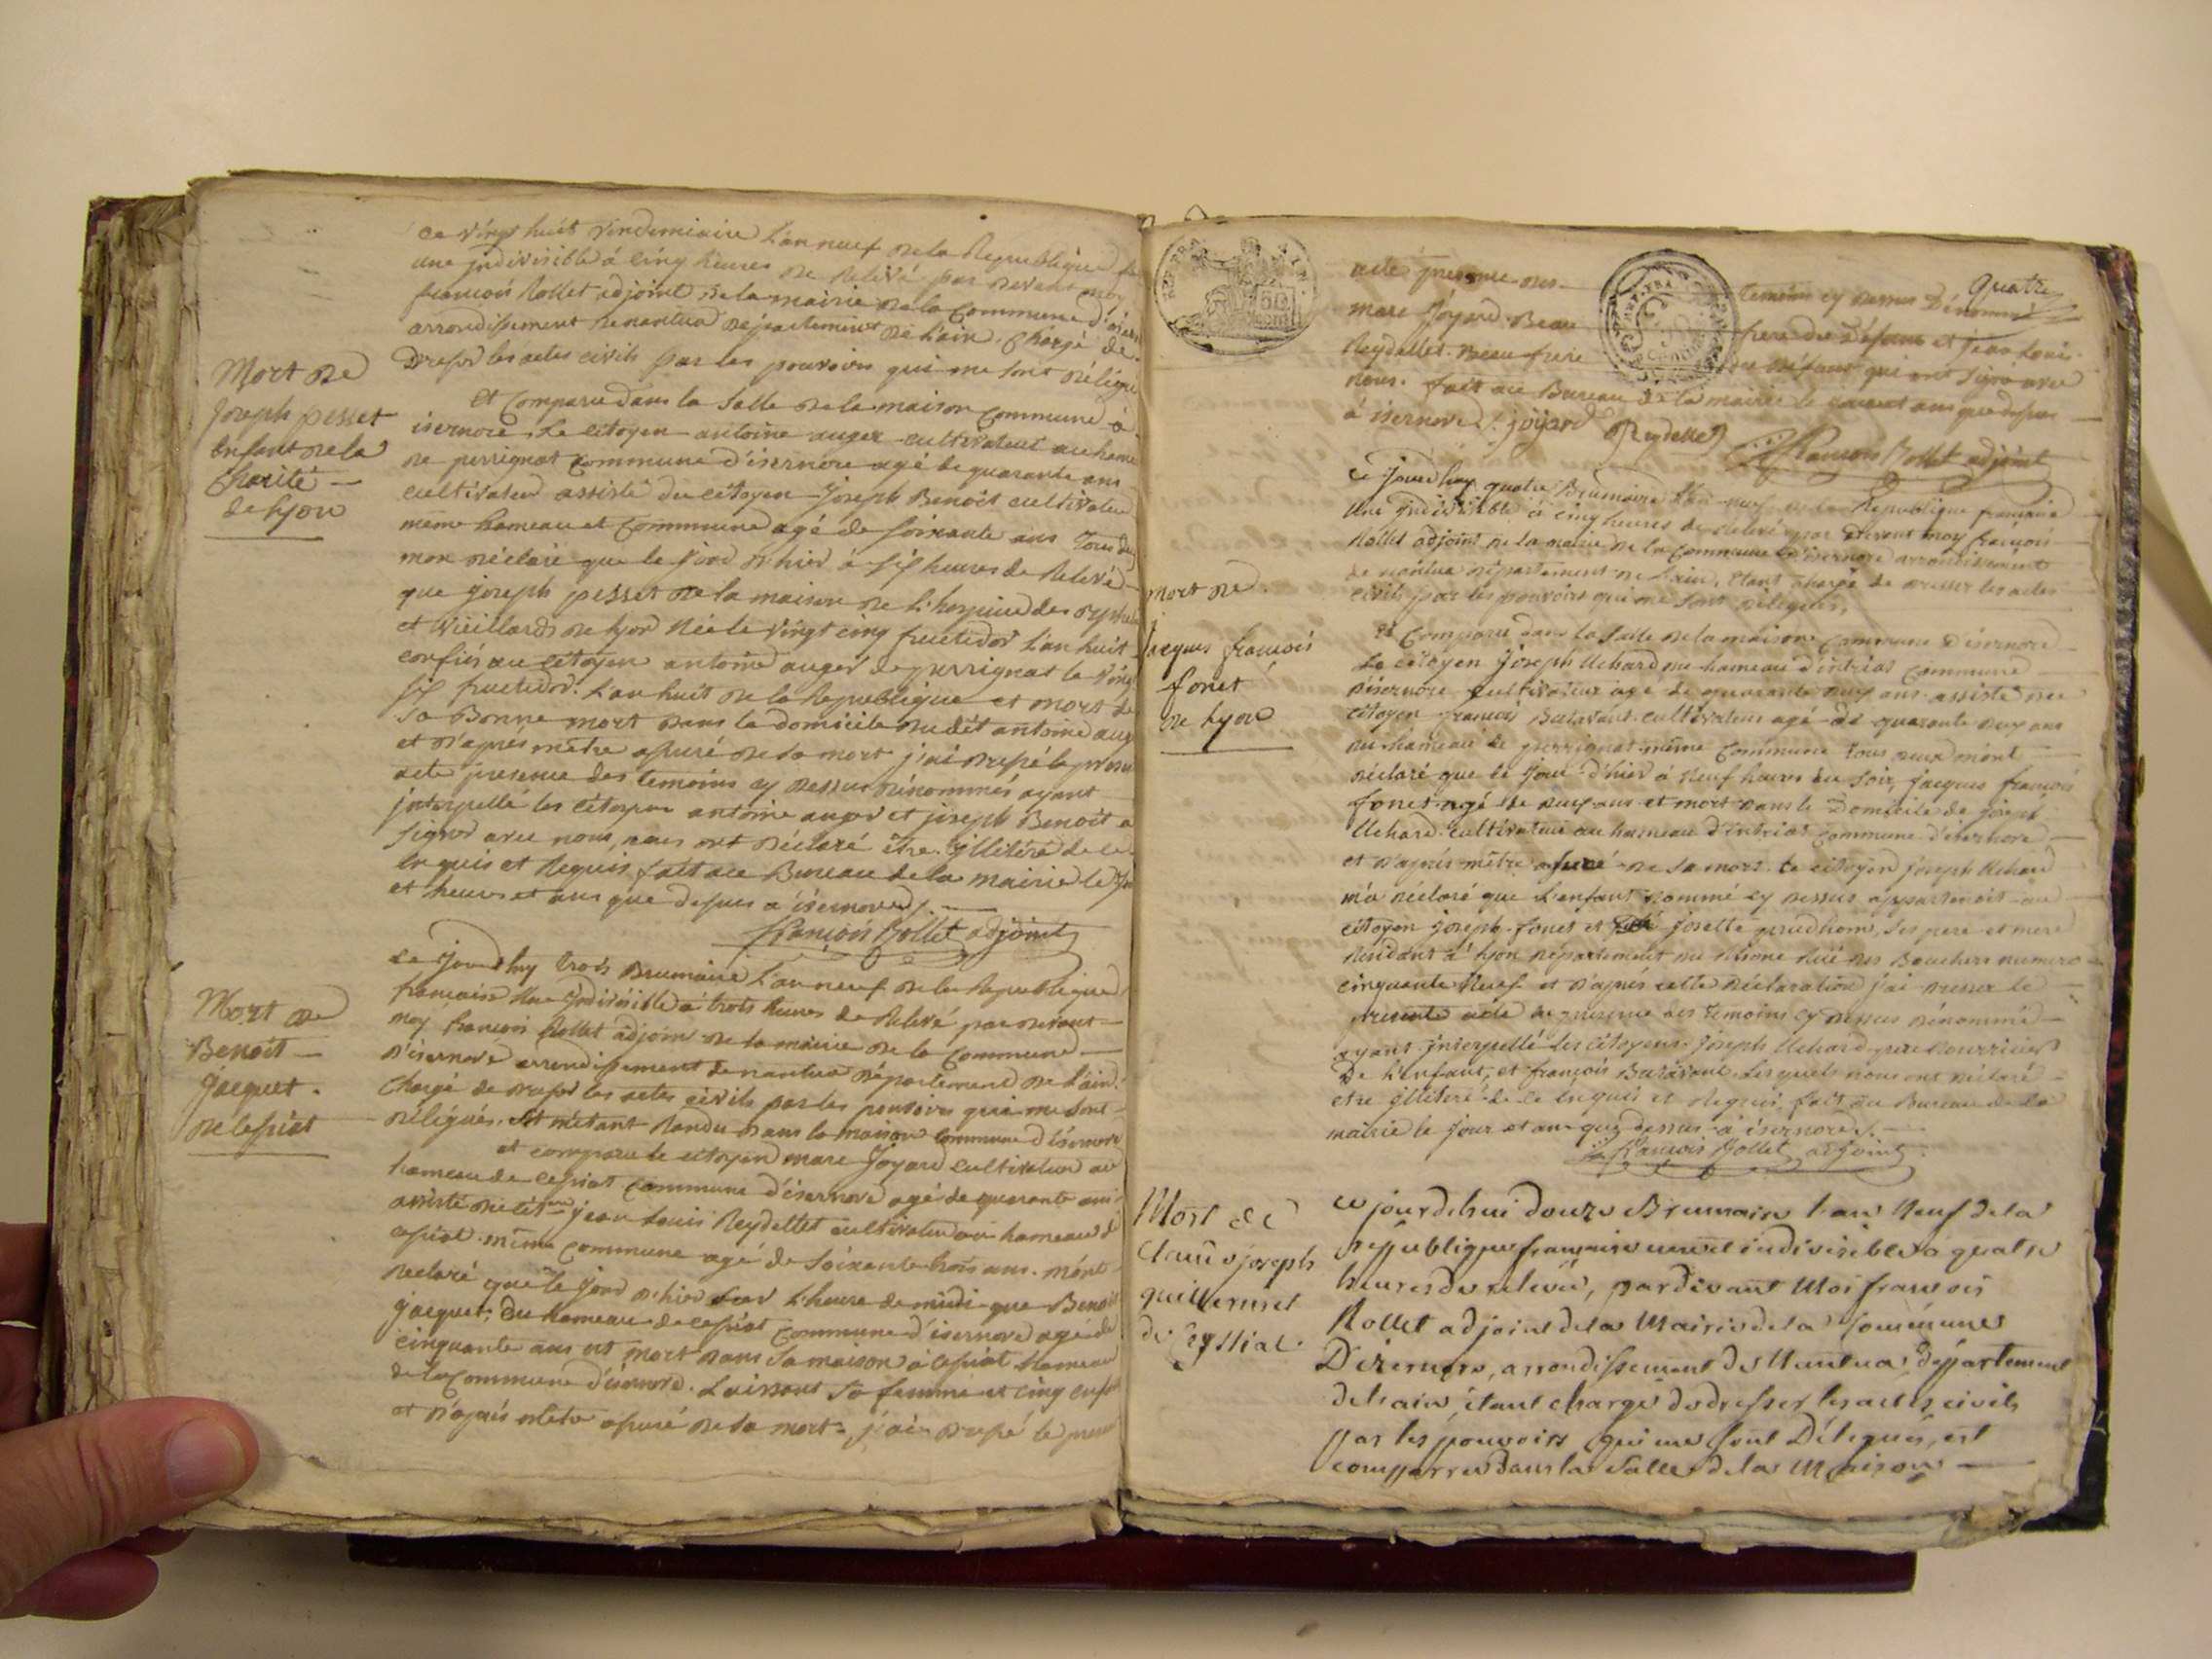 Mort de
Joseph pesset
enfant de la
Charité
de Lyon
ce vingt huit vendemiaire L'an neuf de la Republique
une jndivisible à cinq heures de Relevé par devant moy
francois Rollet adjoint de la mairie de la Commune d'iser
arrondissement de nantua département de L'ain. Chargé de
dresser les actes civils par les pouvoirs qui me sont délégué
Et Comparu dans la Salle de la maison Commune à
isernore, Le citoyen antoine auger cultivateur au hame
de perrignat Commune d'isernore agé de quarante ans
cultivateur assisté du citoyen Joseph Benoit cultivateur
même hameau et Commune agé de soixante ans Tous deu
mon déclaré que le jour d'hier à six heures de Relevé
que joseph pesset de la maison de L'hospice des orphe
et vieillards de Lyon Née le vingt cinq fructidor L'an huit
confié au citoyen antoine auger de perrignat le ving
six fructidor. L'an huit de la Republique et mort de
Sa Bonne mort dans le domicile dudit antoine aug
et d'aprés m'etre assuré de la mort j'ai dressé le prese
acte presence des temoins cy dessus dénommés ayant
jnterpellé les citoyens antoine auger et joseph Benoit a
signer avec nous, nous ont déclaré être jllitéré de ce
enquis et Requis, fait au Bureau de la mairie le jou
et heures et ans que dessus a isernore /.
françois Rollet adjoint
Mort de
Benoit
Jacquet
de Cessiat
Ce Jourd'huy trois Brumaire L'an neuf de la Republique
francaise Une jndivisible à trois heures de Relevé par devant
moy francois Rollet adjoint de la mairie de la Commune
d'isernore arrondissement de nantua département de L'ain.
Chargé de dresser les actes civils par les pouvoirs qui me sont
délégués. Et m'étant Rendu dans la maison Commune d'isernore
et comparu le citoyen marc Joyard cultivateur au
hameau de Cessiat Commune d'isernore agé de quarante ans
assisté du citoyen jean Louis Reydellet cultivateur au hameau de
cessiat même Commune agé de soixante trois ans. m'ont
declaré que le jour d'hier sur L'heure de midi que Benoit
jacquet, du hameau de cessiat Commune d'isernore agé de
cinquante ans est mort dans sa maison à cessiat hameau
de la Commune d'isernore. Laissant Sa femme et cinq enfan
et d'aprés m'etre assuré de sa mort, j'ai dressé le prese
quatre
acte presence des temoins cy dessus Dénommé
marc Joyard Beau frere du Défunt et jean Louis
Reydellet Beau frere du Défunt qui ont signé avec
nous. fait au Bureau de la mairie le jour et an que dessus
à isernore /. joyard Reydellet
françois Rollet adjoint
Mort de
Jacques francois
fonet
de Lyon
Ce Jourd'huy quatre Brumaire L'an neuf de la Republique francaise
Une jndivisible à cinq heures de Relevé par devant moy francois
Rollet adjoint de la mairie de la Commune d'isernore arrondissement
de nantua département de L'ain, Etant chargé de dresser les actes
civils par les pouvoirs qui me sont délégués,
Et Comparu dans la Salle de la maison Commune d'isernore
Le citoyen Joseph Uchard du hameau d'intriat Commune
d'isernore Cultivateur agé de quarante deux ans assisté du
citoyen francois Buravant cultivateur agé de quarante deux ans
du hameau de perrignat même Commune Tous deux m'ont
déclaré que le jour d'hier à Neuf heures du soir, jacques francois
fonet agé de deux ans et mort dans le Domicile de joseph
Uchard cultivateur au hameau d'intriat Commune d'isernore
et d'aprés m'être assuré de sa mort. le citoyen joseph Uchard
m'a déclaré que L'enfant nommé cy dessus appartenoit au
citoyen joseph fonet et josette prudhom, ses pere et mere
Résidant à Lyon département du Rhone Ruë des Bouchers numero
cinquante Neuf et d'aprés cette déclaration j'ai dresser le
présente acte en presence des Temoins cy dessus dénommé
ayant jnterpellé Les citoyens Joseph Uchard pere nourricier
de L'enfant, et francois Buravant Lesquels nous ont déclaré
etre jllitéré de ce enquis et Requis, fait au Bureau de la
mairie le jour et an que dessus à isernore /.
françois Rollet adjoint
Mort de
Claude joseph
guillermet
de Ceyssiat
ce jourdehui douze Brumaire l'an Neuf de la
republique francaise une et indivisible à quatre
heures de relevée, pardevant Moi francois
Rollet adjoint de la Mairie de la Commune
Dizernore, arrondissement de Nantua département
de l'ain, étant chargé de dresser les actes civils
par les pouvoirs qui me sont Délégués, est
comparru dans la Salle de la Maison